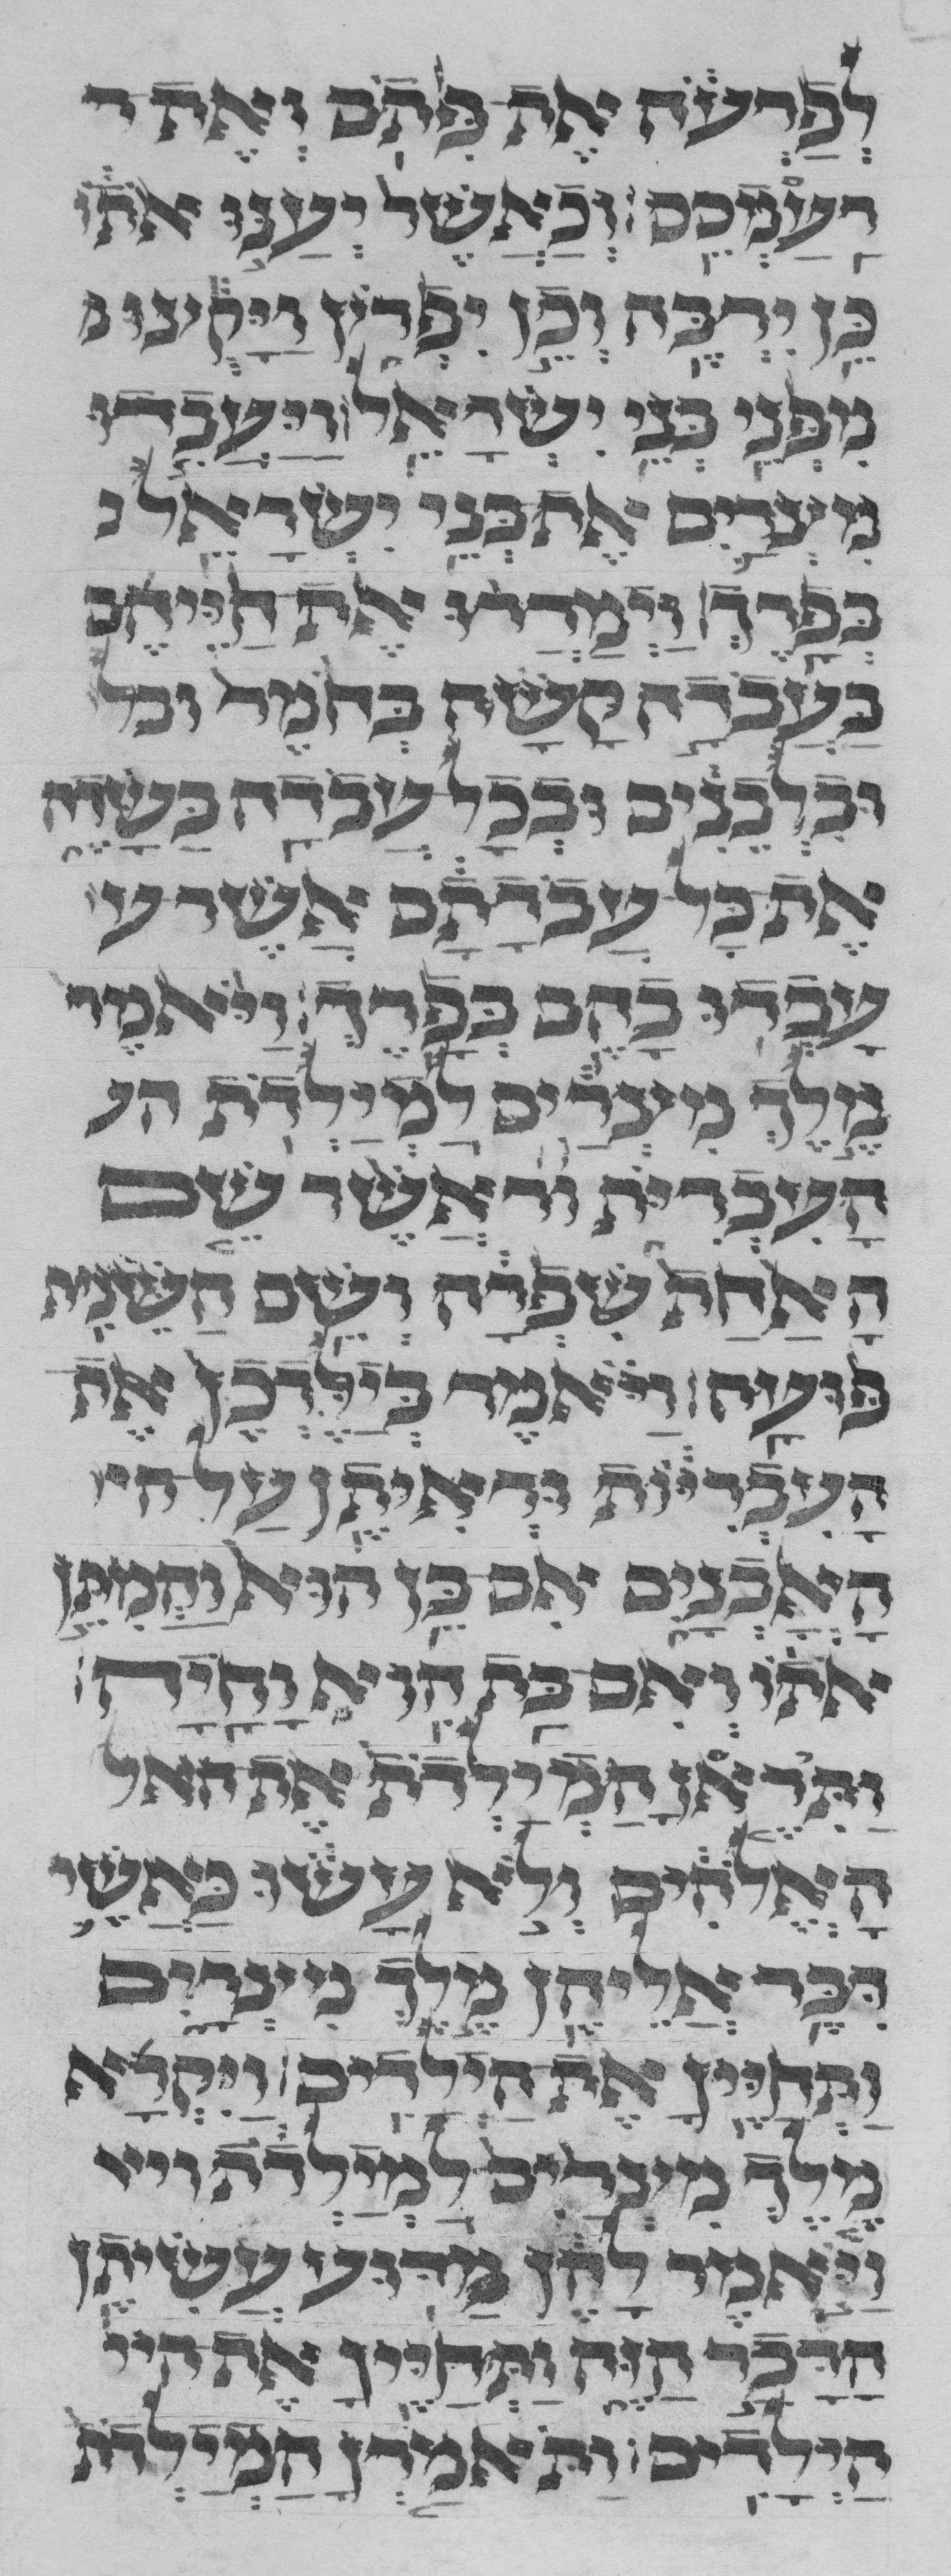 לְפַרְעֹה אֶת פִּתֹם וְאֶת ר
רַעַמְסֵס׃ וְכַאֲשֶׁר יְעַנּוּ אֹתוֹ
כֵּן יִרְבֶּה וְכֵן יִפְרֹץ וַיָּקֻצוּ
מִפְּנֵי בְּנֵי יִשְׂרָאֵל׃ וַיַּעֲבִדוּ
מִצְרַיִם אֶת בְּנֵי יִשְׂרָאֵל
בְּפָרֶךְ׃ וַיְמָרֲרוּ אֶת חַיֵּיהֶם
בַּעֲבֹדָה קָשָׁה בְּחֹמֶר ובל
וּבִלְבֵנִים וּבְכָל עֲבֹדָה בַּשָּׂדֶה
אֵת כָּל עֲבֹדָתָם אֲשֶׁר ע
עָבְדוּ בָהֶם בְּפָרֶךְ׃ וַיֹּאמֶר
מֶלֶךְ מִצְרַיִם לַמְיַלְּדֹת הע
הָעִבְרִיֹּת אֲשֶׁר שֵׁם
הָאַחַת שִׁפְרָה וְשֵׁם הַשֵּׁנִית
פּוּעָה׃ וַיֹּאמֶר בְּיַלֶּדְכֶן אֶת
הָעִבְרִיּוֹת וּרְאִיתֶן עַל הי
הָאָבְנָיִם אִם בֵּן הוּא וַהֲמִתֶּן
אֹתוֹ וְאִם בַּת הִוא וָחָיָה׃
וַתִּירֶאןָ הַמְיַלְּדֹת אֶת האל
הָאֱלֹהִים וְלֹא עָשׂוּ כַּאֲשֶׁר
דִּבֶּר אֲלֵיהֶן מֶלֶךְ מִצְרָיִם
וַתְּחַיֶּיןָ אֶת הַיְלָדִים׃ וַיִּקְרָא
מֶלֶךְ מִצְרַיִם לַמְיַלְּדֹת ויא
וַיֹּאמֶר לָהֶן מַדּוּעַ עֲשִׂיתֶן
הַדָּבָר הַזֶּה וַתְּחַיֶּיןָ אֶת היי
הַיְלָדִים׃ וַתֹּאמַרְןָ הַמְיַלְּדֹת